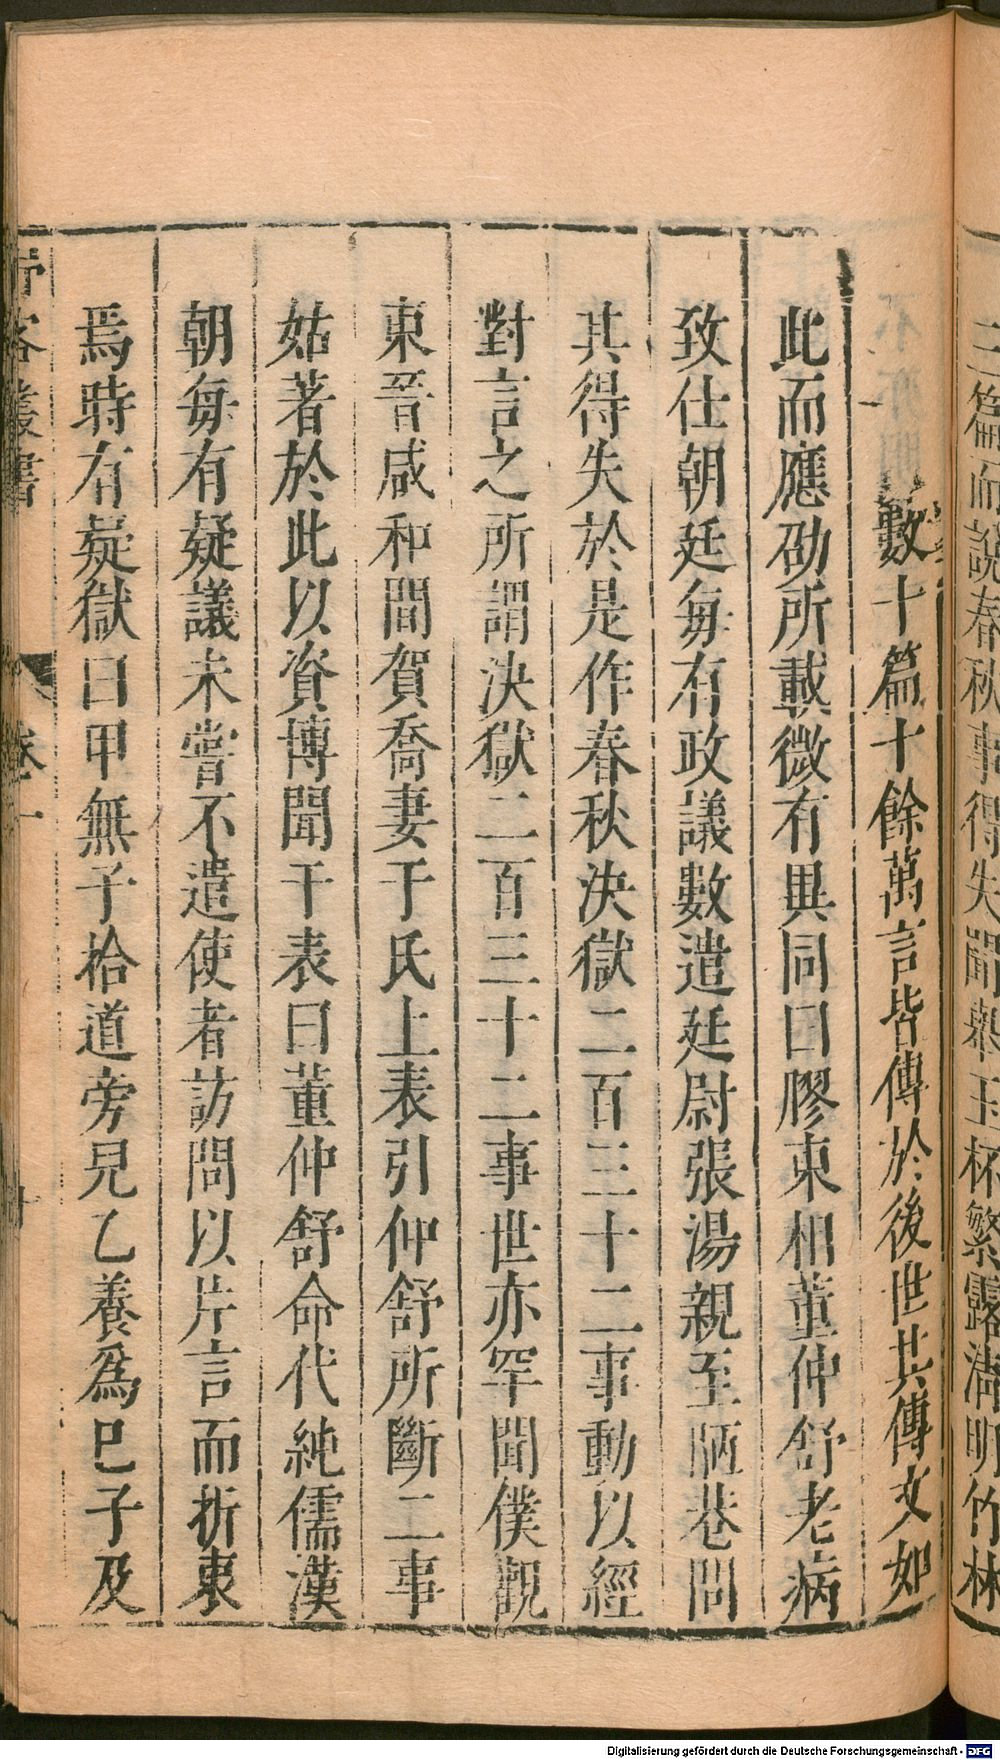 三篇而說春秋事得失聞舉玉杯繁露清明竹林
數十篇十餘萬言皆傳於後世其傳文如
此而應劭所載微有異同曰膠東相董仲舒老病
致仕朝廷每有政議數遣廷尉張湯親至陋巷問
其得失於是作春秋決獄二百三十二事動以經
對言之所謂決獄二百三十二事世亦罕聞僕觀
東晉咸和間賀喬妻于氏上表引仲舒所斷二事
姑著於此以資博聞于表曰董仲舒命代純儒漢
朝每有疑議未嘗不遣使者訪問以片言而折衷
焉時有疑獄曰甲無子拾道旁兒乙養為己子及
客叢書 卷一
Digitalisierung gefördert durch die Deutsche Forschungsgemeinschaft - DFG